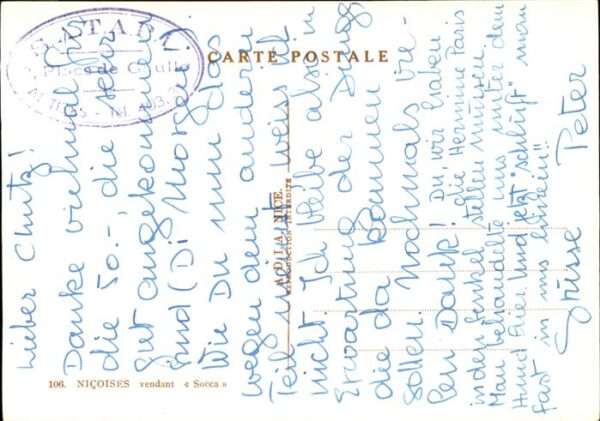 CARTE POSTALE
Lieber Chutz!
Danke vielmal für
die 50.-, die sehr
gut angekommen
sind (Di Morgen).
Wie Du nun das
wegen dem anderen
Teil meinst weiss ich
nicht. Ich bleibe also in
Erwartung der Dinge
die da kommen
sollen. Nochmals vie-
len Dank! Du, wir haben
die Hermine Paris
in den Senkel stellen müssen.
Man behandelte uns unter dem
Hund hier. Und jetzt "schlüft" man
fast in uns hinein!!!
Grüsse Peter
ADIA. NICE.
REPRODUCTION INTERDITE
106. NIÇOISES vendant « Socca »